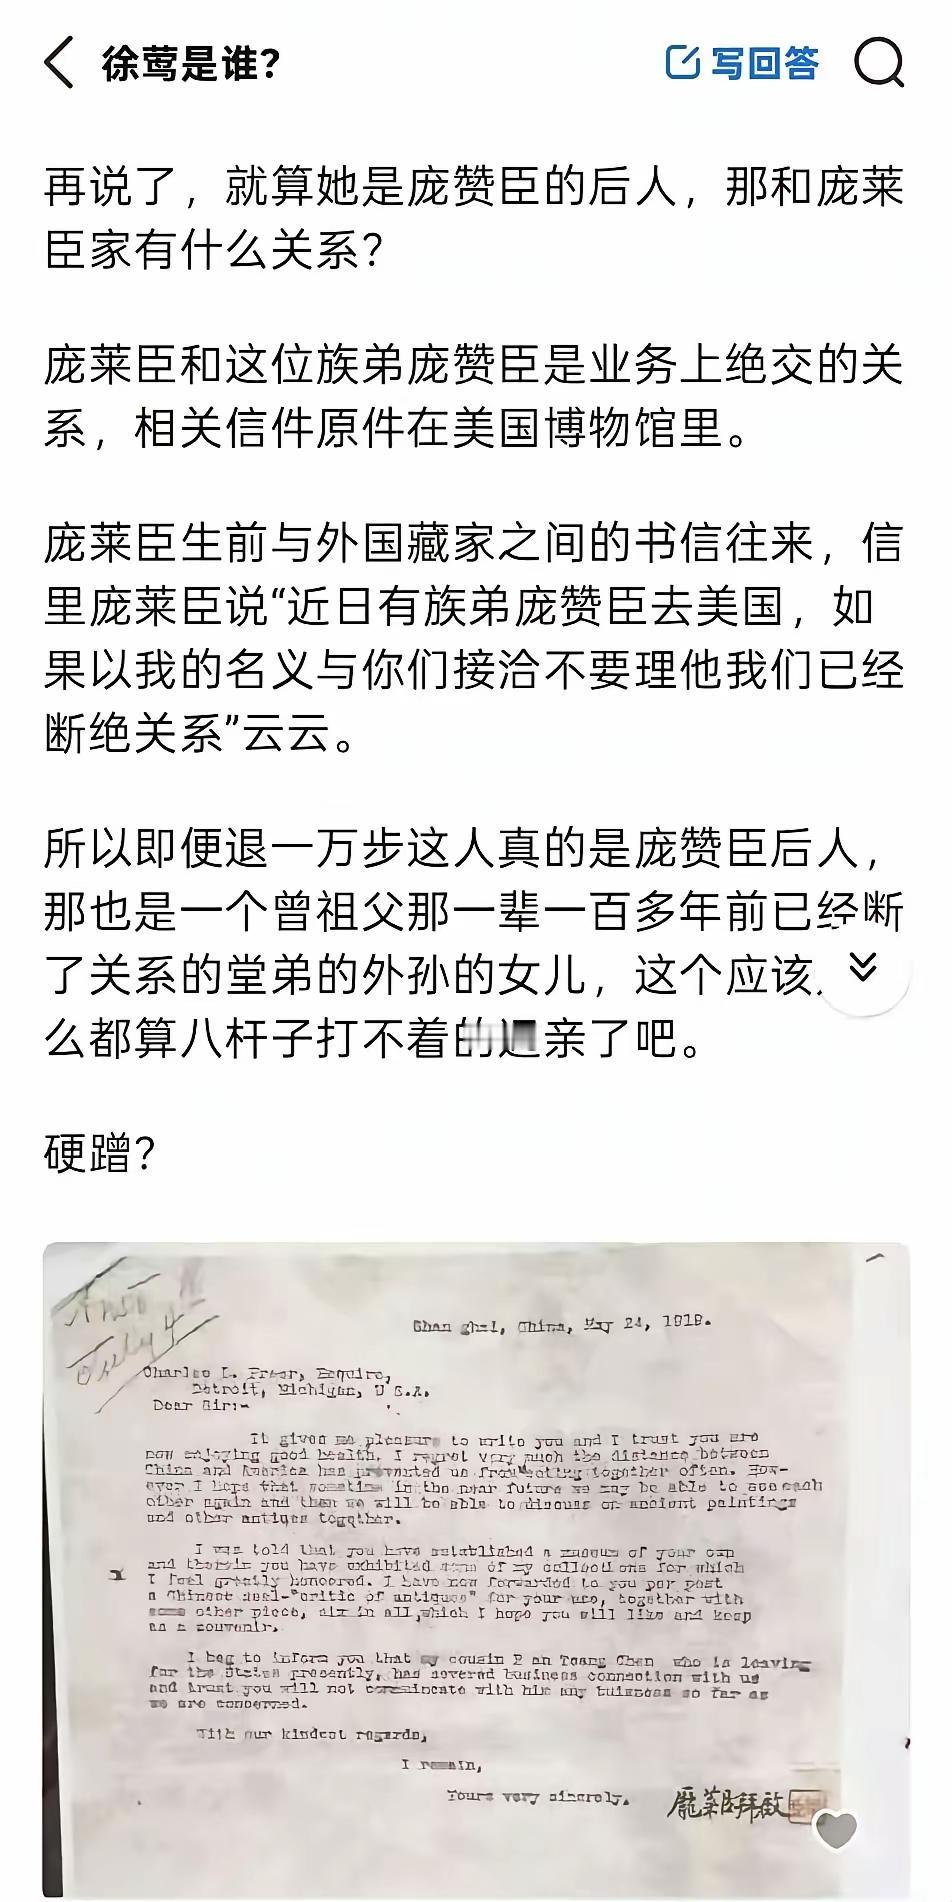 徐莺是谁？
写回答
再说了，就算她是庞赞臣的后人，那和庞莱
臣家有什么关系？
庞莱臣和这位族弟庞赞臣是业务上绝交的关
系，相关信件原件在美国博物馆里。
庞莱臣生前与外国藏家之间的书信往来，信
里庞莱臣说“近日有族弟庞赞臣去美国，如
果以我的名义与你们接洽不要理他我们已经
断绝关系”云云。
所以即便退一万步这人真的是庞赞臣后人，
那也是一个曾祖父那一辈一百多年前已经断
了关系的堂弟的外孙的女儿，这个应该
么都算八杆子打不着的 亲了吧。
硬蹭？
July 4
Shanghai, China, May 24, 191
Charles L. Freer, Esquire,
Detroit, Michigan, U S.A.
Dear Sir:-
It gives me pleasure to write you and I trust you are
now enjoying good health. I regret very much the distance between
China and America has prevented us from together often. How-
ever I hope that sometime in the near future we may be able to see each
other again and then we will to able to discuss on ancient paintings
and other antique together.
I was told that you have established a museum of your own
and therein you have exhibited some of my collections for which
I feel greatly honoored. I have now forwarded to you por post
a Chinese seal-"critic of antiques" for your use, together with
some other piece, six in all,which I hope you will like and keep
as a souvenir.
I beg to inform you that my cousin P an Tsang Chen who is leaving
for the States presently, has severed business connection with us
and trust you will not communicate with him any business so far as
we are concerned.
With our kindest regards,
I remain,
Yours very sincerely,
龐萊臣拜啟